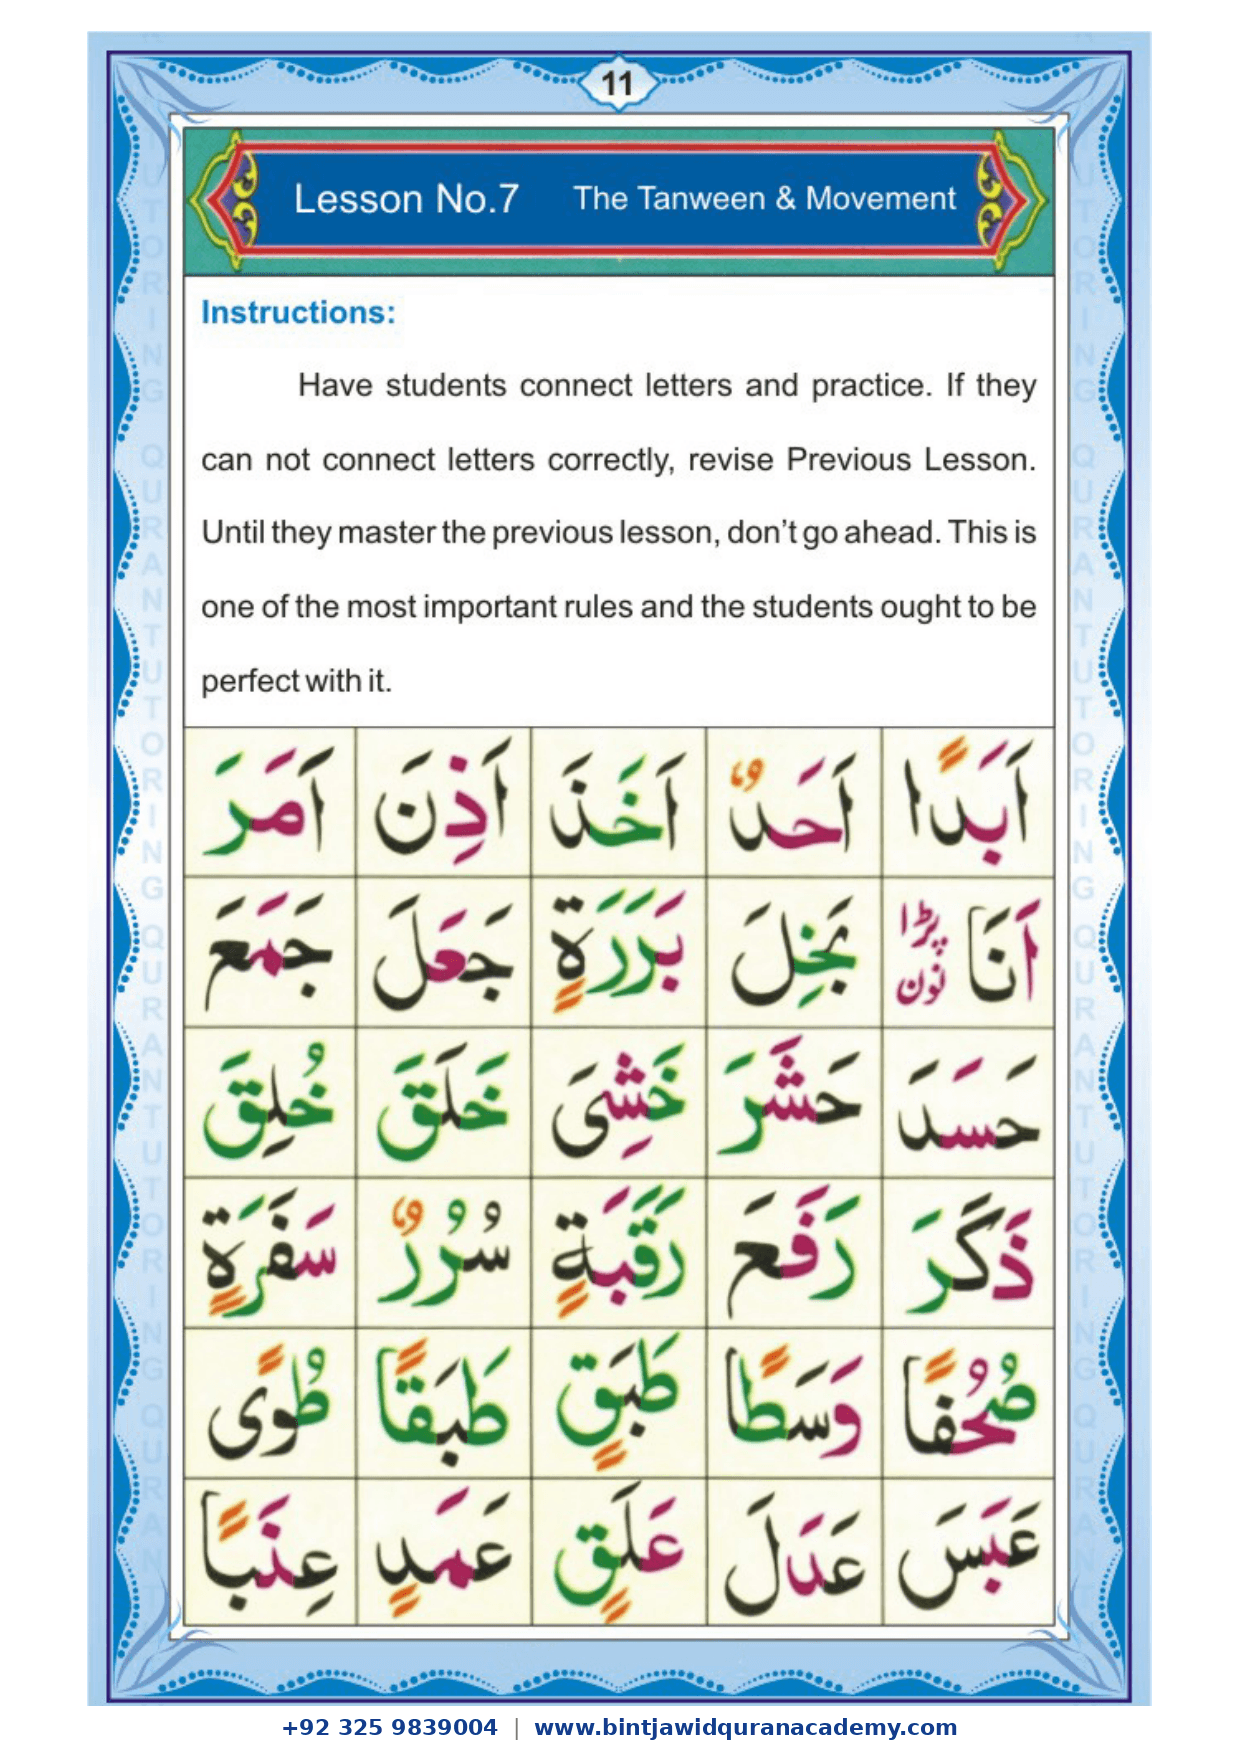 11
Lesson No.7 The Tanween & Movement
Instructions:
Have students connect letters and practice. If they
can not connect letters correctly, revise Previous Lesson.
Until they master the previous lesson, don't go ahead. This is
one of the most important rules and the students ought to be
perfect with it.
اَبَدًا اَحَدٌ اَخَذَ اَذِنَ اَمَرَ
اَنَا پڑا نون بَخِلَ بَرَرَةٍ جَعَلَ جَمَعَ
حَسَدَ حَشَرَ خَشِیَ خَلَقَ خُلِقَ
ذَكَرَ رَفَعَ رَقَبَةٍ سُرُرٌ سَفَرَةٍ
صُحُفًا وَسَطًا طَبَقٍ طَبَقًا طُوًی
عَبَسَ عَدَلَ عَلَقٍ عَمَدٍ عِنَبًا
+92 325 9839004 | www.bintjawidquranacademy.com